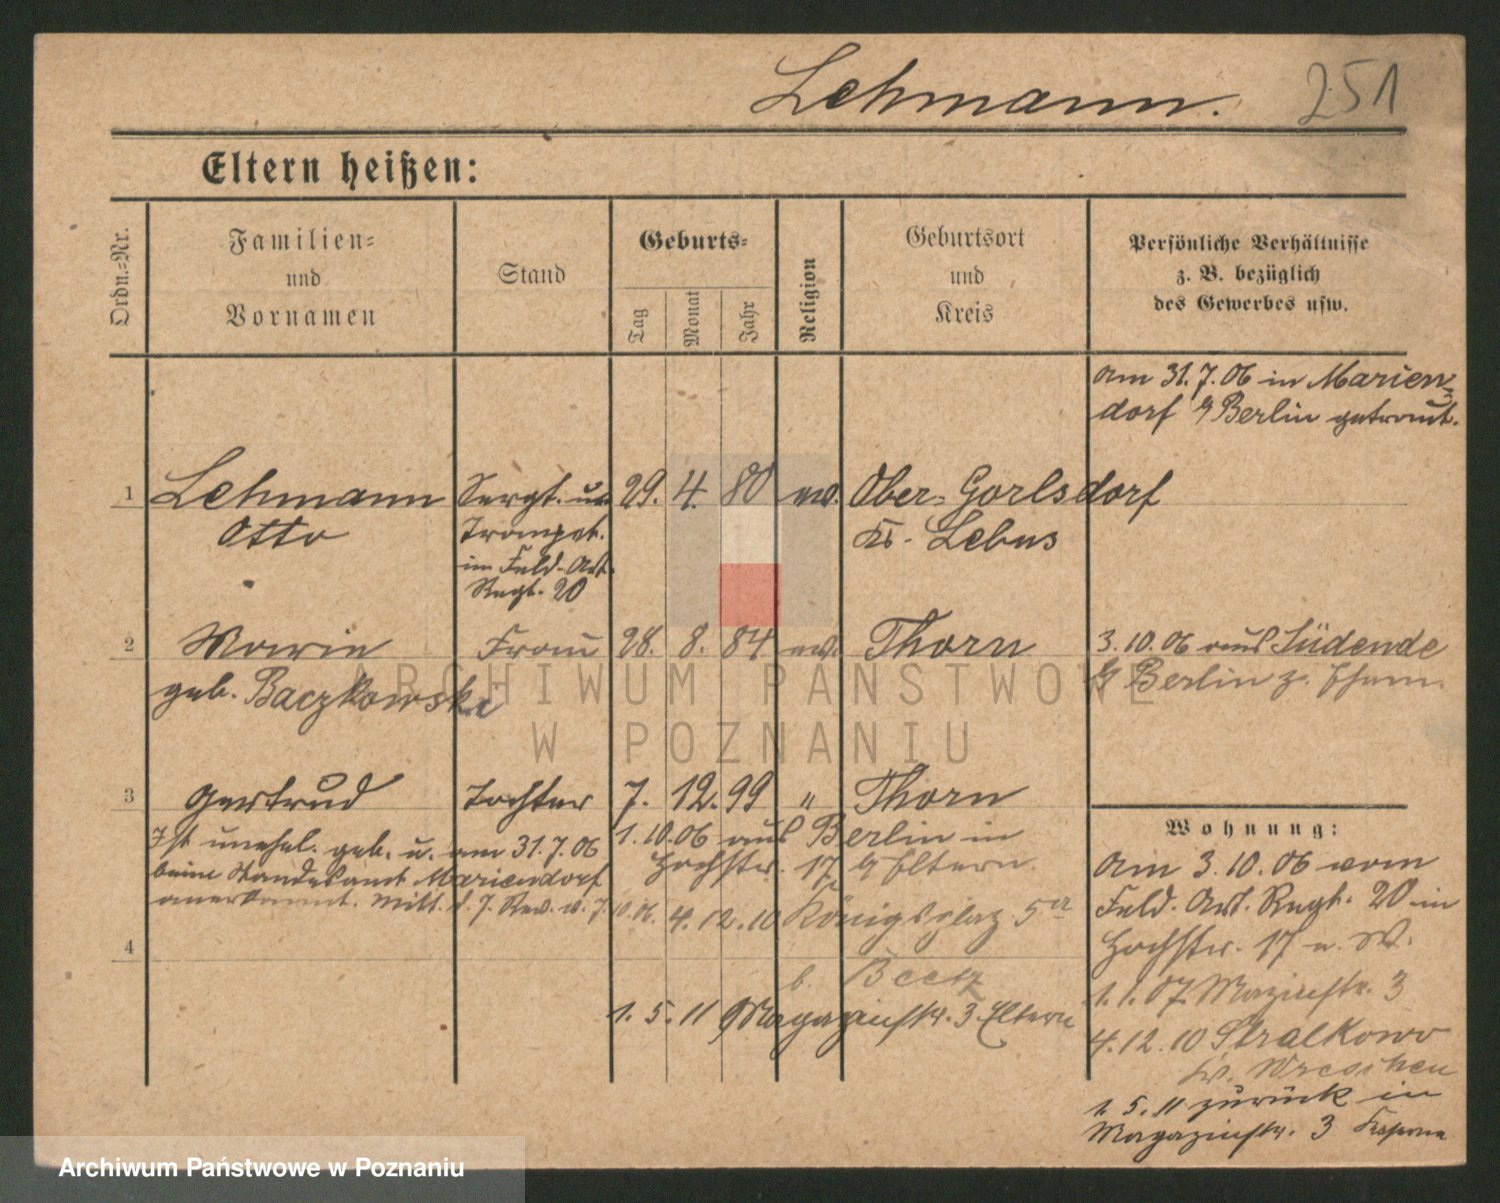 Lehmann. 251
Eltern heißen:
Ordn.-Nr.
Familien-
und
Vornamen
Stand
Geburts-
Tag
Monat
Jahr
Religion
Geburtsort
und
Kreis
Persönliche Verhältnisse
z. B. bezüglich
des Gewerbes usw.
am 31.7.06 in Marien-
dorf b/Berlin getraut.
1 Lehmann Sergt. u. 29. 4. 80 ev. Ober-Gorlsdorf
Otto Trompet. Ks. Lebus
im Feld-Art.
Regt. 20
2 Marie Frau 28. 8. 84 ev. Thorn 3.10.06 aus Südende
geb. Baczkowski b/Berlin z. Ehem.
ARCHIWUM PAŃSTWOWE
W POZNANIU
3 Gertrud Tochter 7. 12. 99 " Thorn
Ist unehel. geb. u. am 31.7.06
beim Standesamt Mariendorf
anerkannt. Mitt. d. 7. Rev. v. 7.10.06.
1.10.06 aus Berlin in
Hochstr. 17 b/Eltern.
4.12.10 Königsplaz 5a
b. Beetz
4
1.5.11 Magazinstr. 3. Eltern
Wohnung:
Am 3.10.06 vom
Feld. Art. Regt. 20 in
Hochstr. 17 n. W.
1.1.07 Mazinstr. 3
4.12.10 Stralkowo
Kr. Wreschen
1.5.11 zurück in
Magazinstr. 3 Kaserne
Archiwum Państwowe w Poznaniu